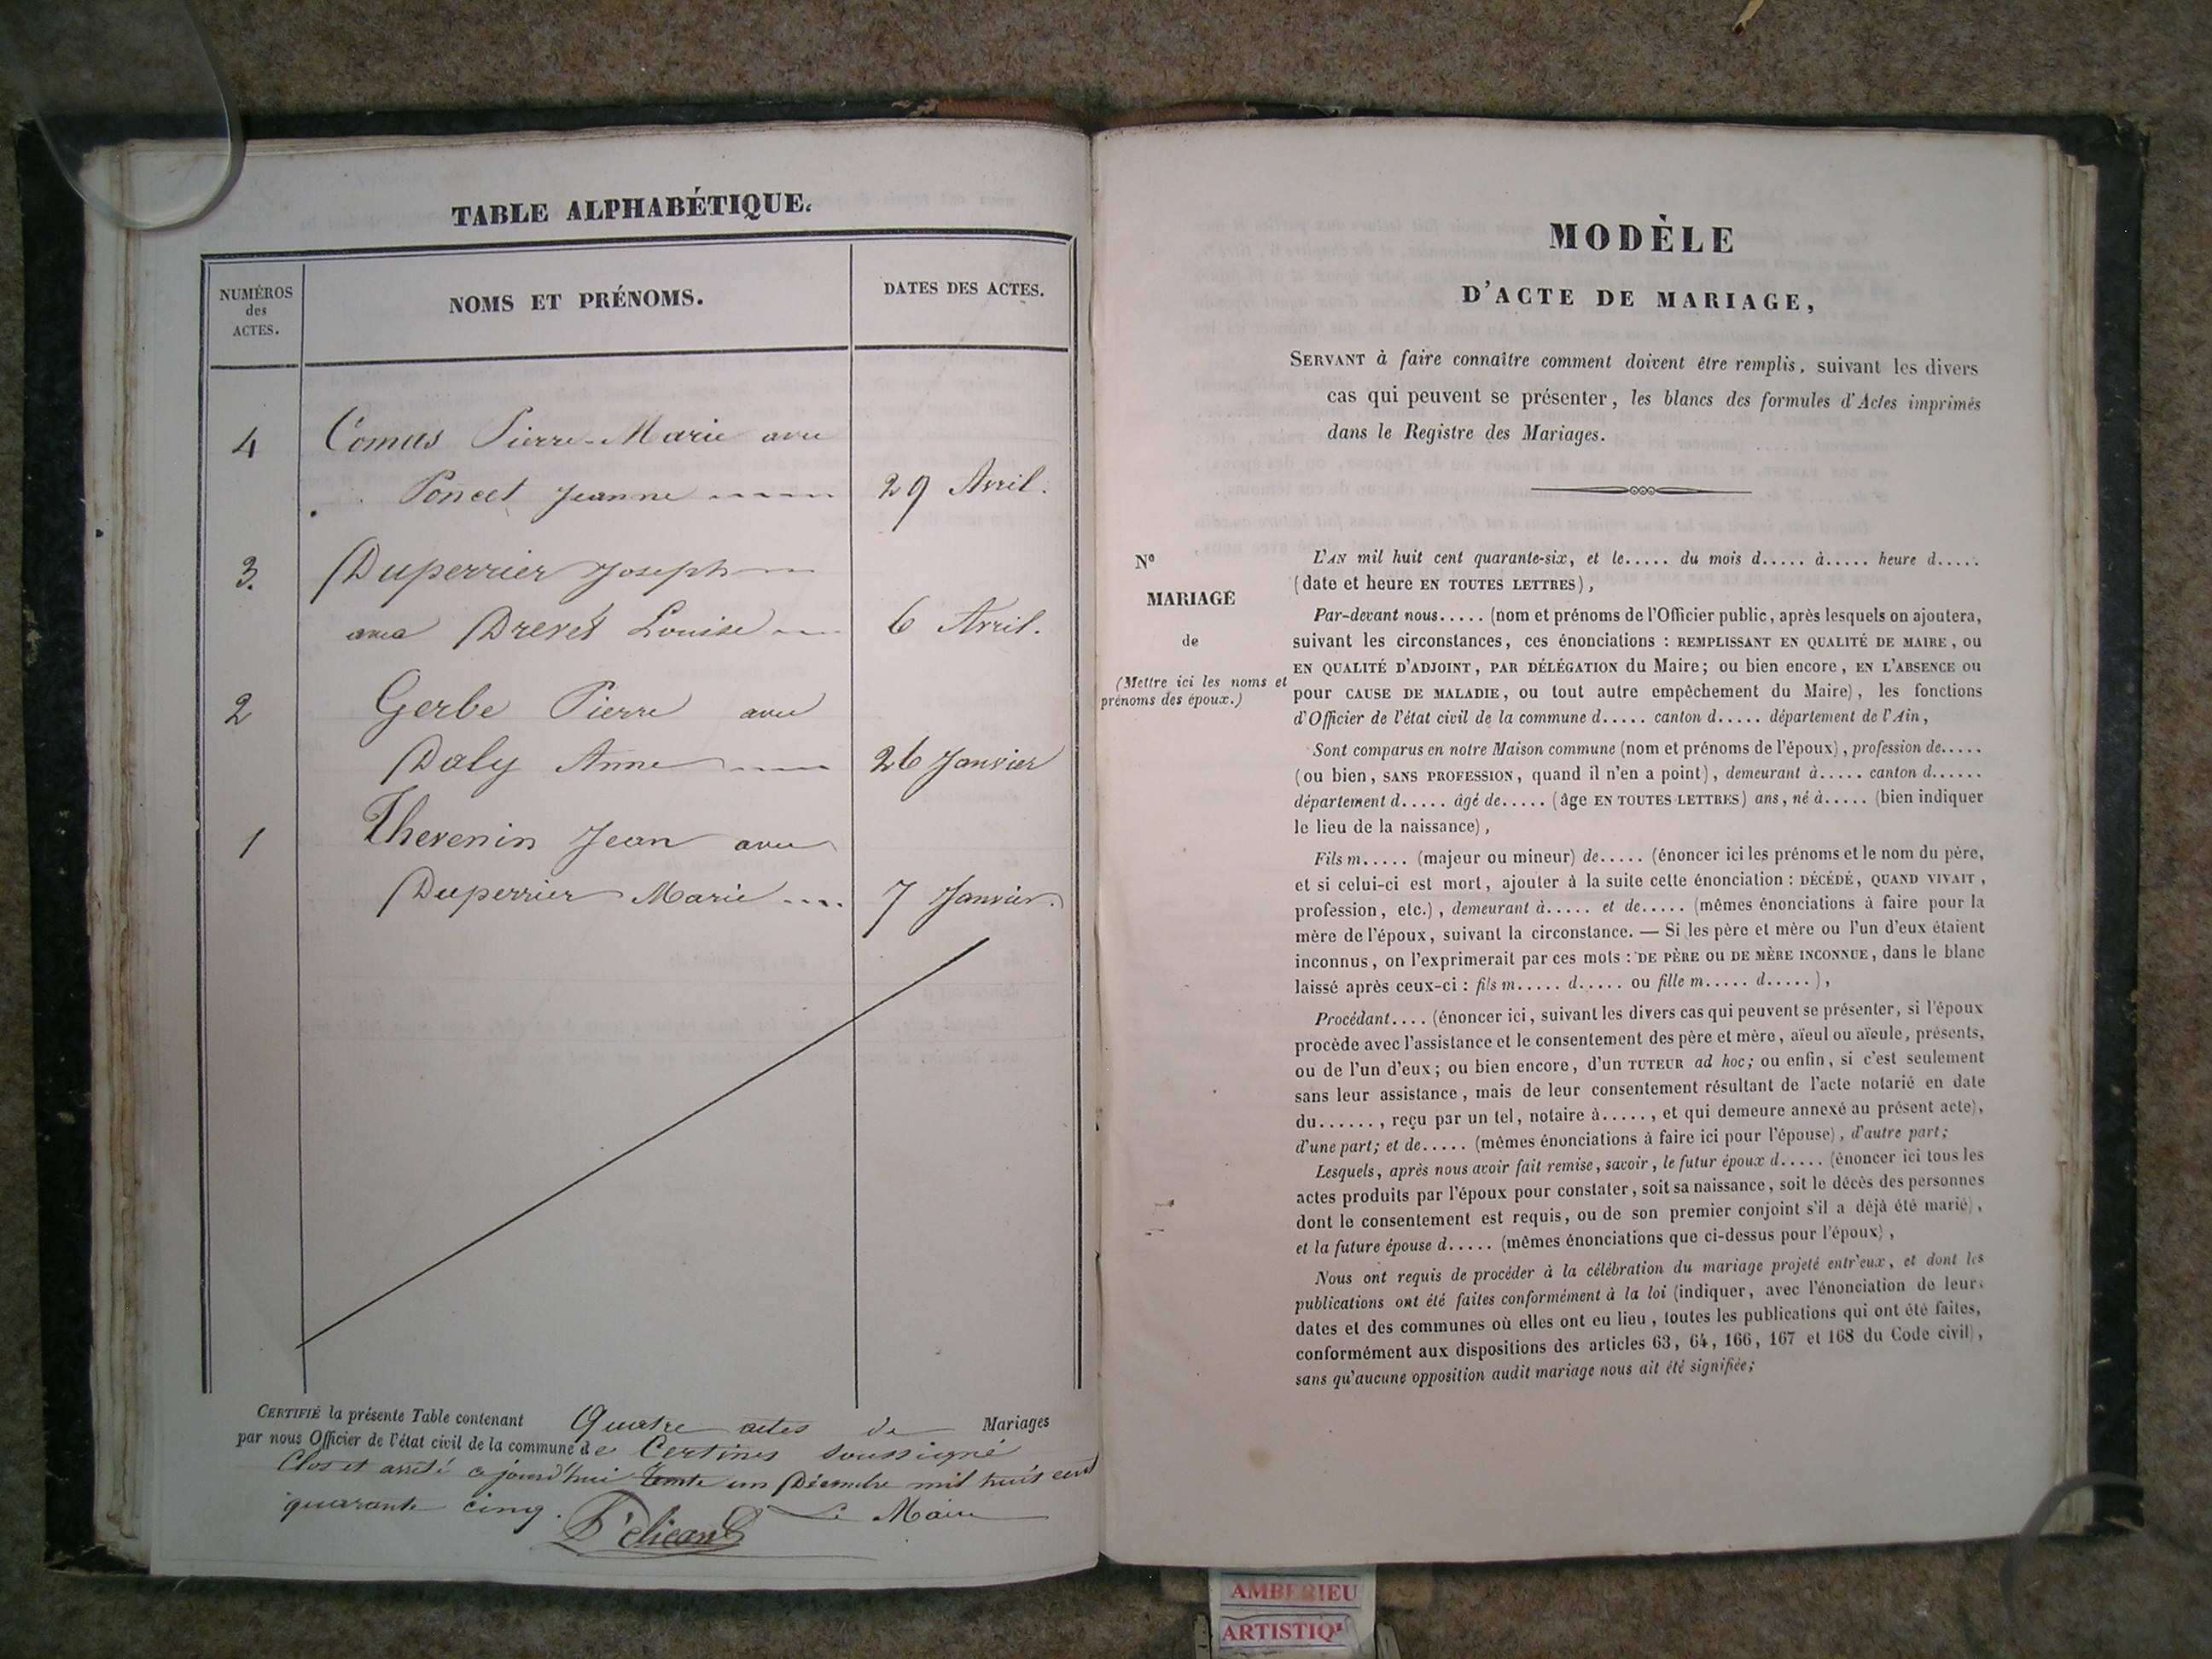 TABLE ALPHABÉTIQUE.
NUMÉROS
des
ACTES.
NOMS ET PRÉNOMS.
DATES DES ACTES.
4 Comus Pierre-Marie avec
Poncet Jeanne 29 Avril.
3. Duperrier Joseph
avec Drevet Louise 6 Avril.
2 Gerbe Pierre avec
Daly Anne 26 Janvier
1 Thevenin Jean avec
Duperrier Marie .... 7 Janvier.
CERTIFIÉ la présente Table contenant Quatre actes de Mariages
par nous Officier de l'état civil de la commune de Certines soussigné
Clos et arrêté ajourd'hui trente un Décembre mil huit cent
quarante cinq. Le Maire
MODÈLE
D'ACTE DE MARIAGE,
SERVANT à faire connaître comment doivent être remplis, suivant les divers
cas qui peuvent se présenter, les blancs des formules d'Actes imprimés
dans le Registre des Mariages.
N°
MARIAGE
de
(Mettre ici les noms et
prénoms des époux.)
L'AN mil huit cent quarante-six, et le..... du mois d..... à..... heure d.....
(date et heure EN TOUTES LETTRES),
Par-devant nous..... (nom et prénoms de l'Officier public, après lesquels on ajoutera,
suivant les circonstances, ces énonciations : REMPLISSANT EN QUALITÉ DE MAIRE, ou
EN QUALITÉ D'ADJOINT, PAR DÉLÉGATION du Maire; ou bien encore, EN L'ABSENCE ou
pour CAUSE DE MALADIE, ou tout autre empêchement du Maire), les fonctions
d'Officier de l'état civil de la commune d..... canton d..... département de l'Ain,
Sont comparus en notre Maison commune (nom et prénoms de l'époux), profession de.....
(ou bien, SANS PROFESSION, quand il n'en a point), demeurant à..... canton d......
département d..... âgé de..... (âge EN TOUTES LETTRES) ans, né à..... (bien indiquer
le lieu de la naissance),
Fils m..... (majeur ou mineur) de..... (énoncer ici les prénoms et le nom du père,
et si celui-ci est mort, ajouter à la suite cette énonciation : DÉCÉDÉ, QUAND VIVAIT,
profession, etc.), demeurant à..... et de..... (mêmes énonciations à faire pour la
mère de l'époux, suivant la circonstance. — Si les père et mère ou l'un d'eux étaient
inconnus, on l'exprimerait par ces mots : DE PÈRE ou DE MÈRE INCONNUE, dans le blanc
laissé après ceux-ci : fils m..... d..... ou fille m..... d.....),
Procédant.... (énoncer ici, suivant les divers cas qui peuvent se présenter, si l'époux
procède avec l'assistance et le consentement des père et mère, aïeul ou aïeule, présents,
ou de l'un d'eux; ou bien encore, d'un TUTEUR ad hoc; ou enfin, si c'est seulement
sans leur assistance, mais de leur consentement résultant de l'acte notarié en date
du......, reçu par un tel, notaire à....., et qui demeure annexé au présent acte),
d'une part; et de..... (mêmes énonciations à faire ici pour l'épouse), d'autre part;
Lesquels, après nous avoir fait remise, savoir, le futur époux d..... (énoncer ici tous les
actes produits par l'époux pour constater, soit sa naissance, soit le décès des personnes
dont le consentement est requis, ou de son premier conjoint s'il a déjà été marié),
et la future épouse d..... (mêmes énonciations que ci-dessus pour l'époux),
Nous ont requis de procéder à la célébration du mariage projeté entr'eux, et dont les
publications ont été faites conformément à la loi (indiquer, avec l'énonciation de leurs
dates et des communes où elles ont eu lieu, toutes les publications qui ont été faites,
conformément aux dispositions des articles 63, 64, 166, 167 et 168 du Code civil),
sans qu'aucune opposition audit mariage nous ait été signifiée;
AMBERIEU
ARTISTIQ